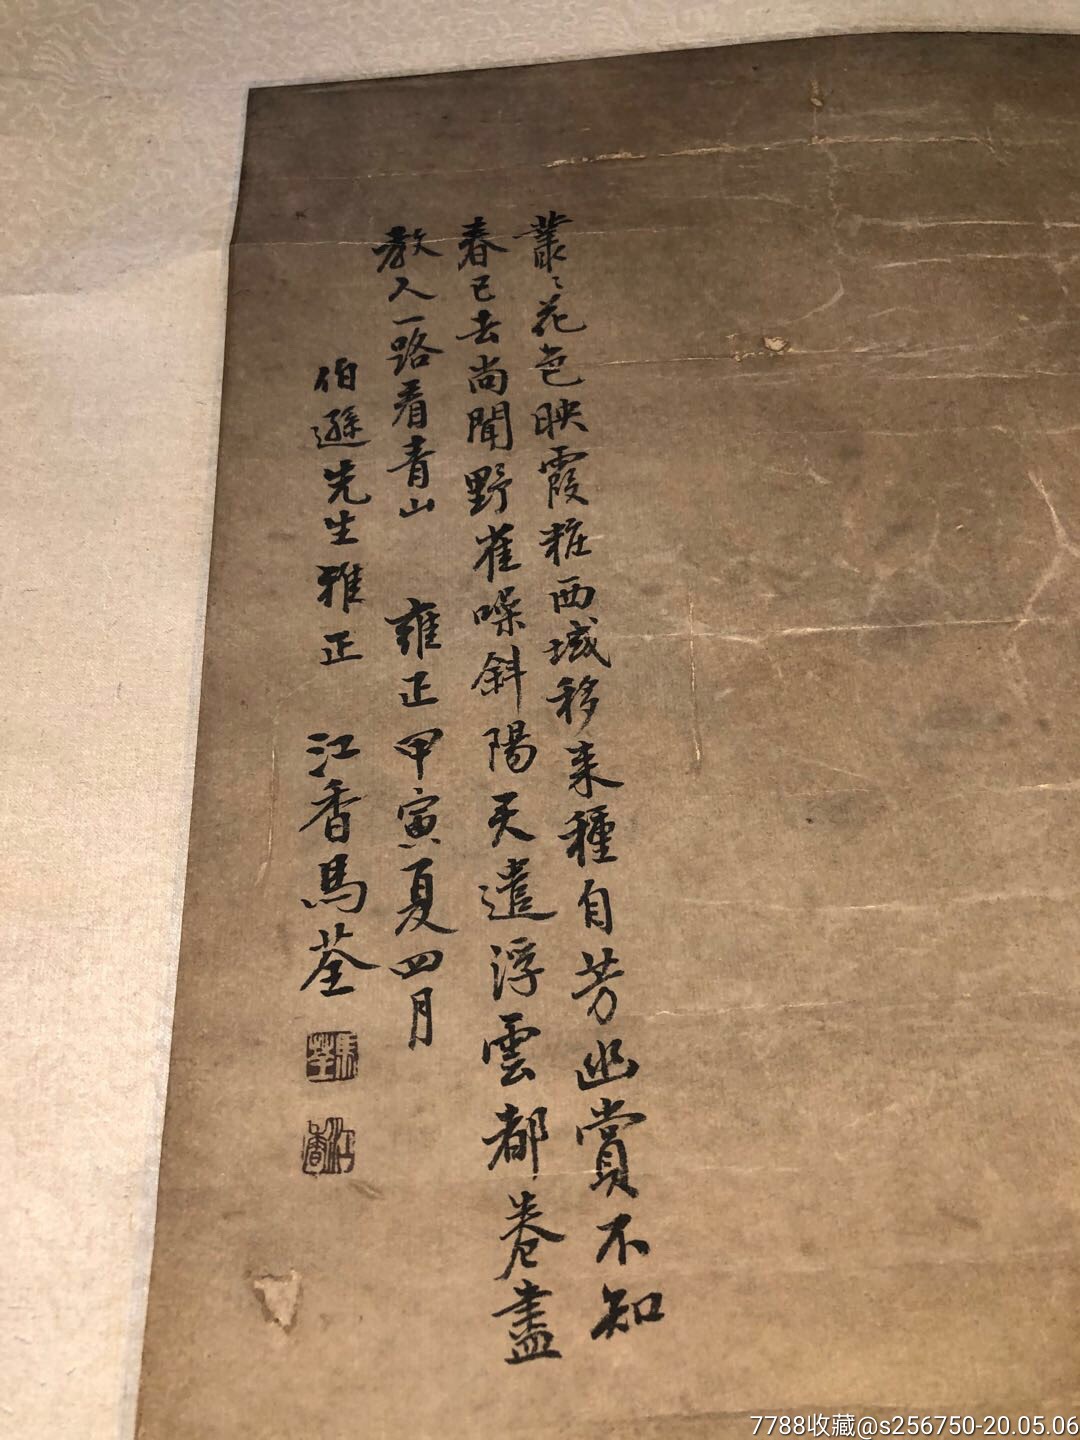 叢〻花色映霞粧西域移来種自芳幽賞不知
春已去尚聞野雀噪斜陽天遣浮雲都卷盡
教人一路看青山 雍正甲寅夏四月
伯遜先生雅正 江香馬荃
馬荃
江香
7788收藏@s256750-20.05.06